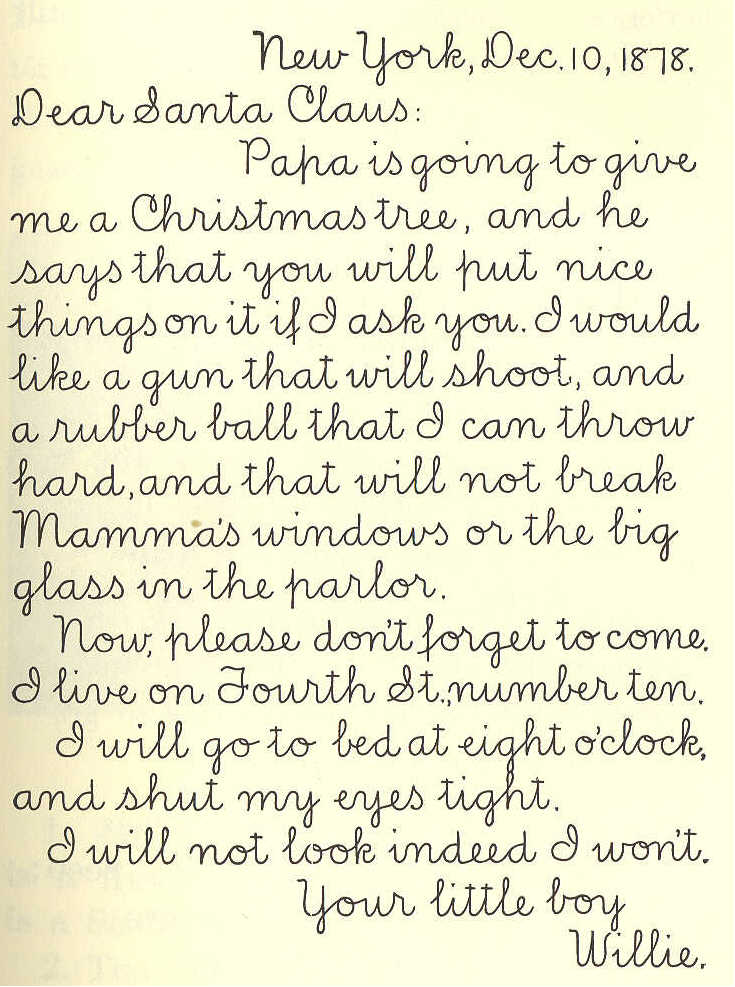 New York, Dec. 10, 1878.
Dear Santa Claus:
Papa is going to give
me a Christmas tree, and he
says that you will put nice
things on it if I ask you. I would
like a gun that will shoot, and
a rubber ball that I can throw
hard, and that will not break
Mamma's windows or the big
glass in the parlor.
Now, please don't forget to come.
I live on Fourth St., number ten.
I will go to bed at eight o'clock,
and shut my eyes tight.
I will not look indeed I won't.
Your little boy
Willie.